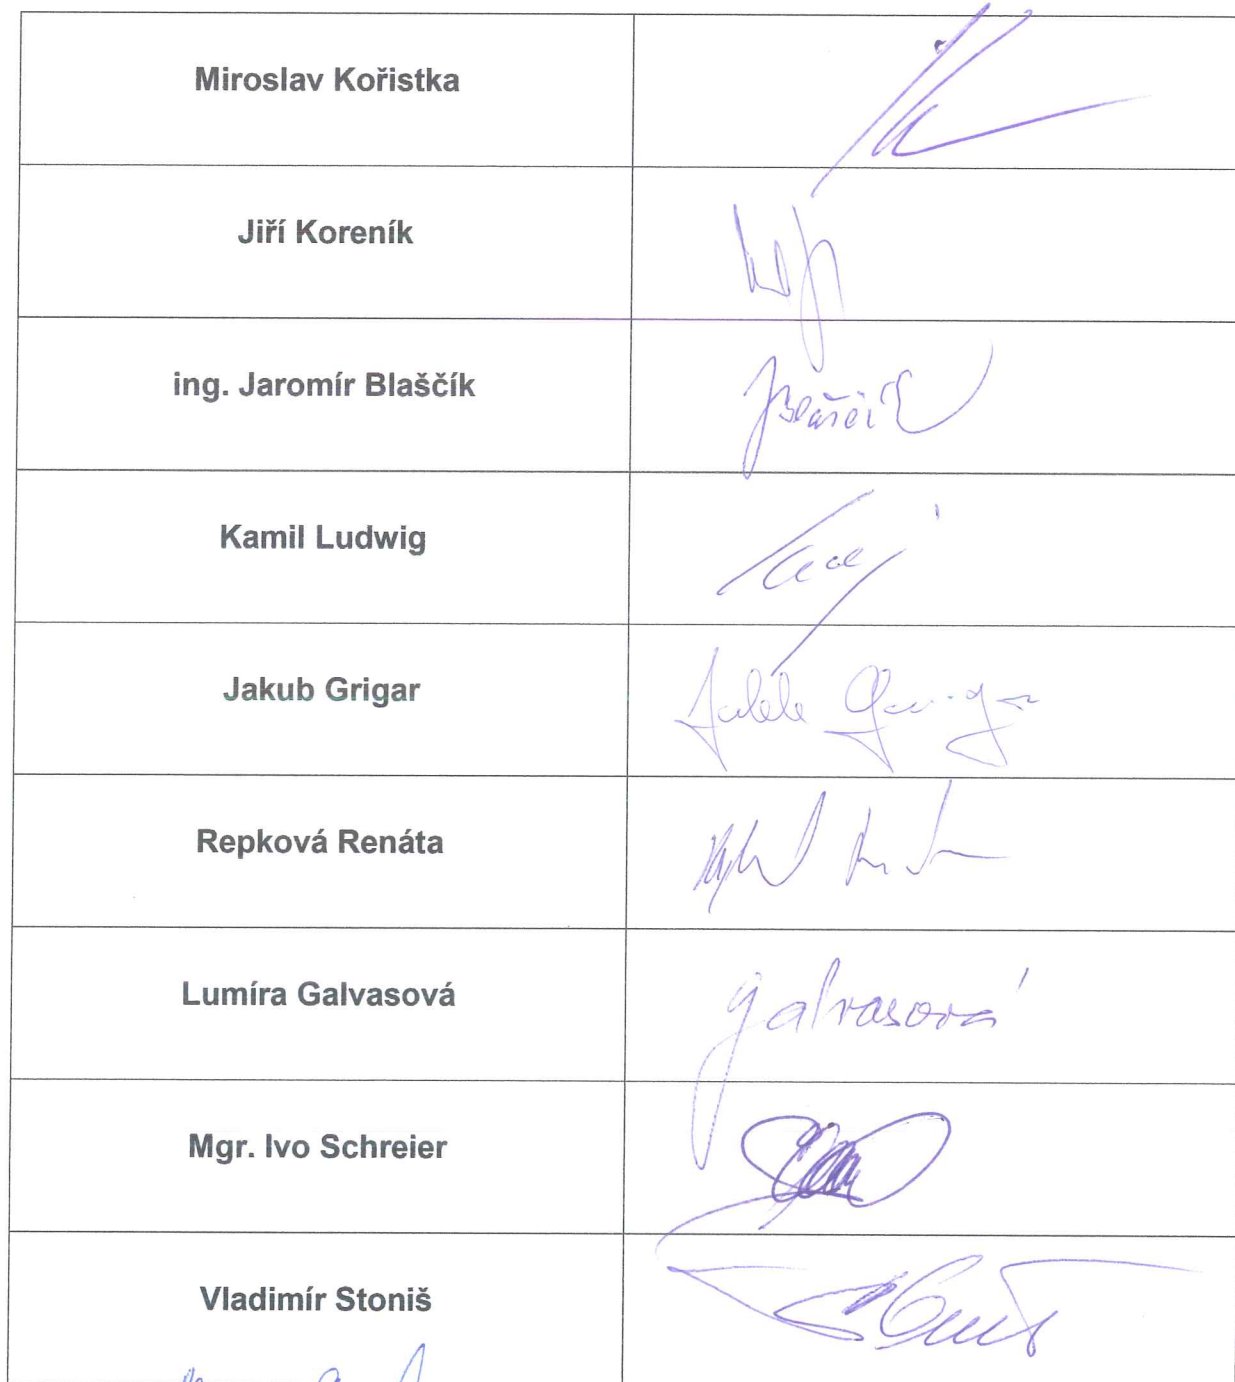 Miroslav Kořistka
Jiří Koreník
ing. Jaromír Blaščík
JBlaščík
Kamil Ludwig
Jakub Grigar
Jakub Grigar
Repková Renáta
Lumíra Galvasová
galvasová
Mgr. Ivo Schreier
Vladimír Stoniš